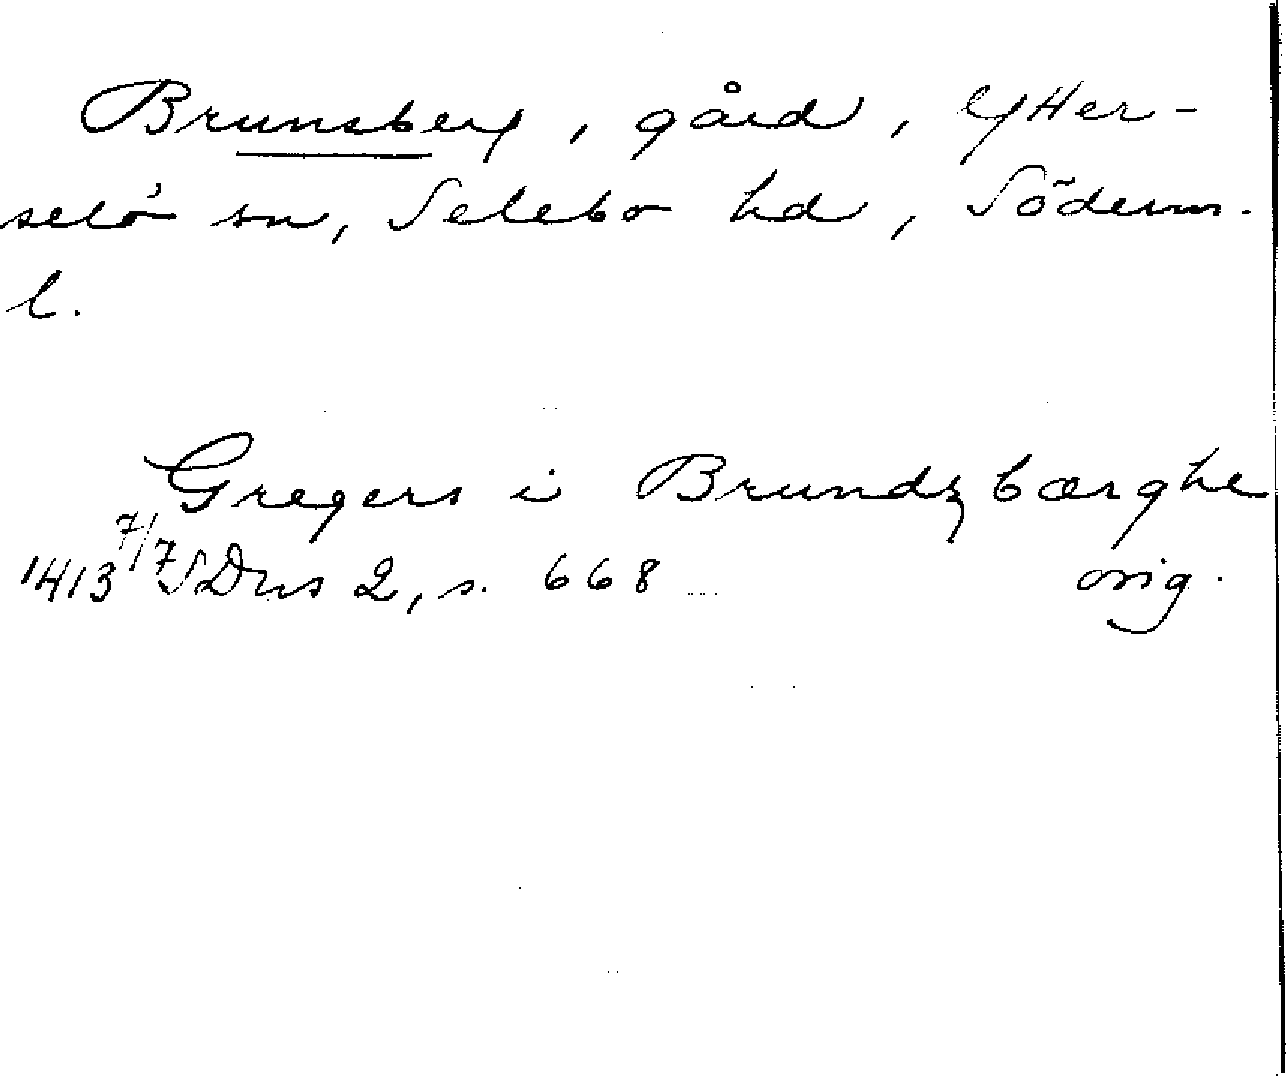 Brunsberg, gård, Ytter-
selö sn, Selebo hd, Söderm.
l.
Gregers i Brundzbærghe
1413 7/7 SDns 2, s. 668 orig.